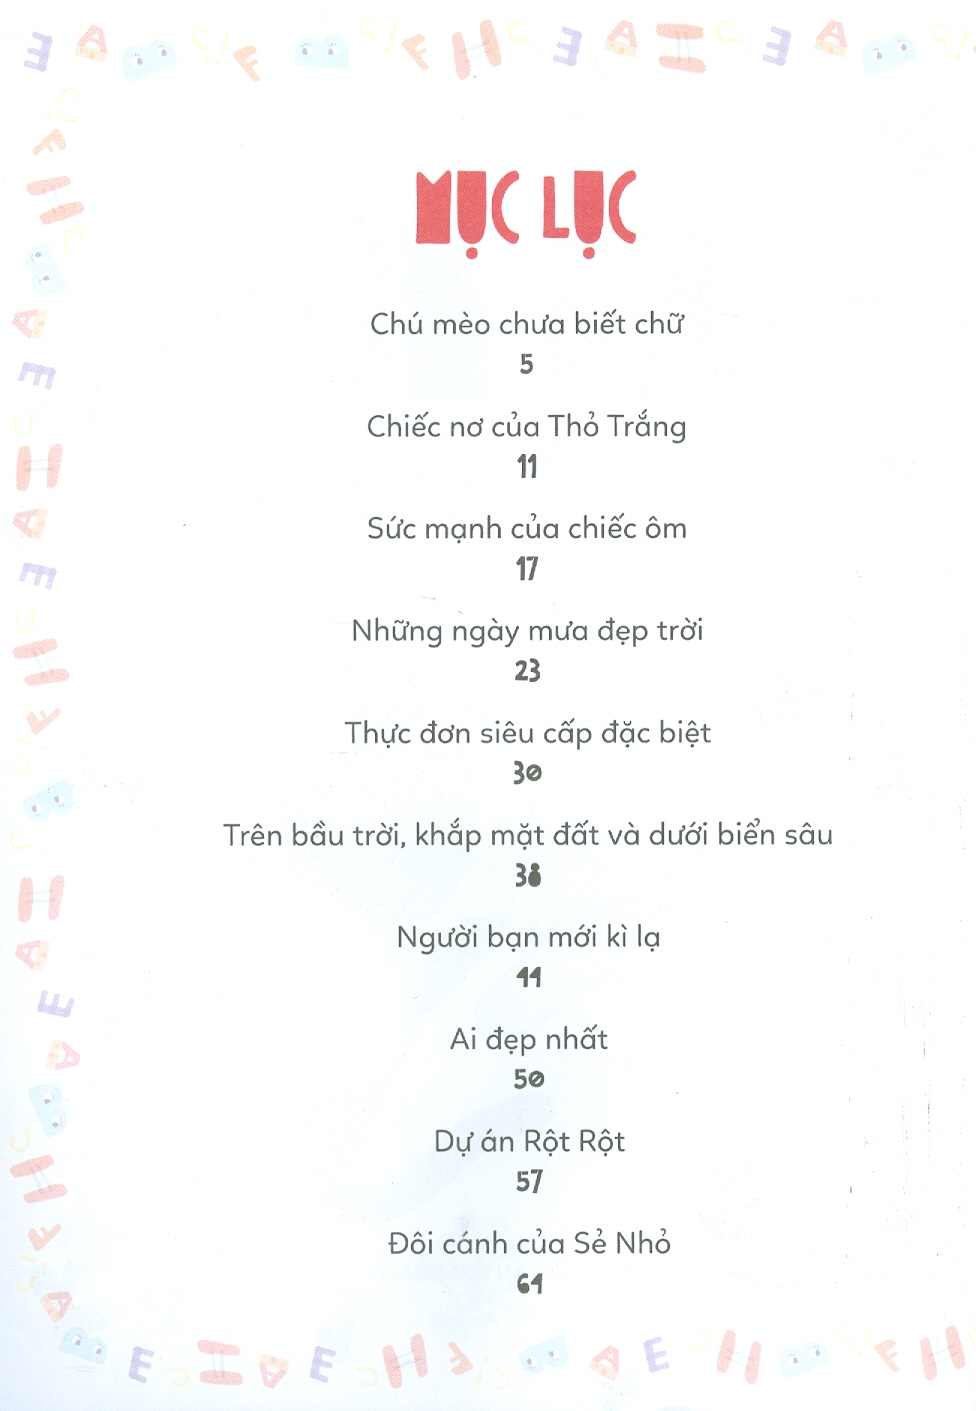 MỤC LỤC
Chú mèo chưa biết chữ
5
Chiếc nơ của Thỏ Trắng
11
Sức mạnh của chiếc ôm
17
Những ngày mưa đẹp trời
23
Thực đơn siêu cấp đặc biệt
30
Trên bầu trời, khắp mặt đất và dưới biển sâu
38
Người bạn mới kì lạ
44
Ai đẹp nhất
50
Dự án Rột Rột
57
Đôi cánh của Sẻ Nhỏ
64